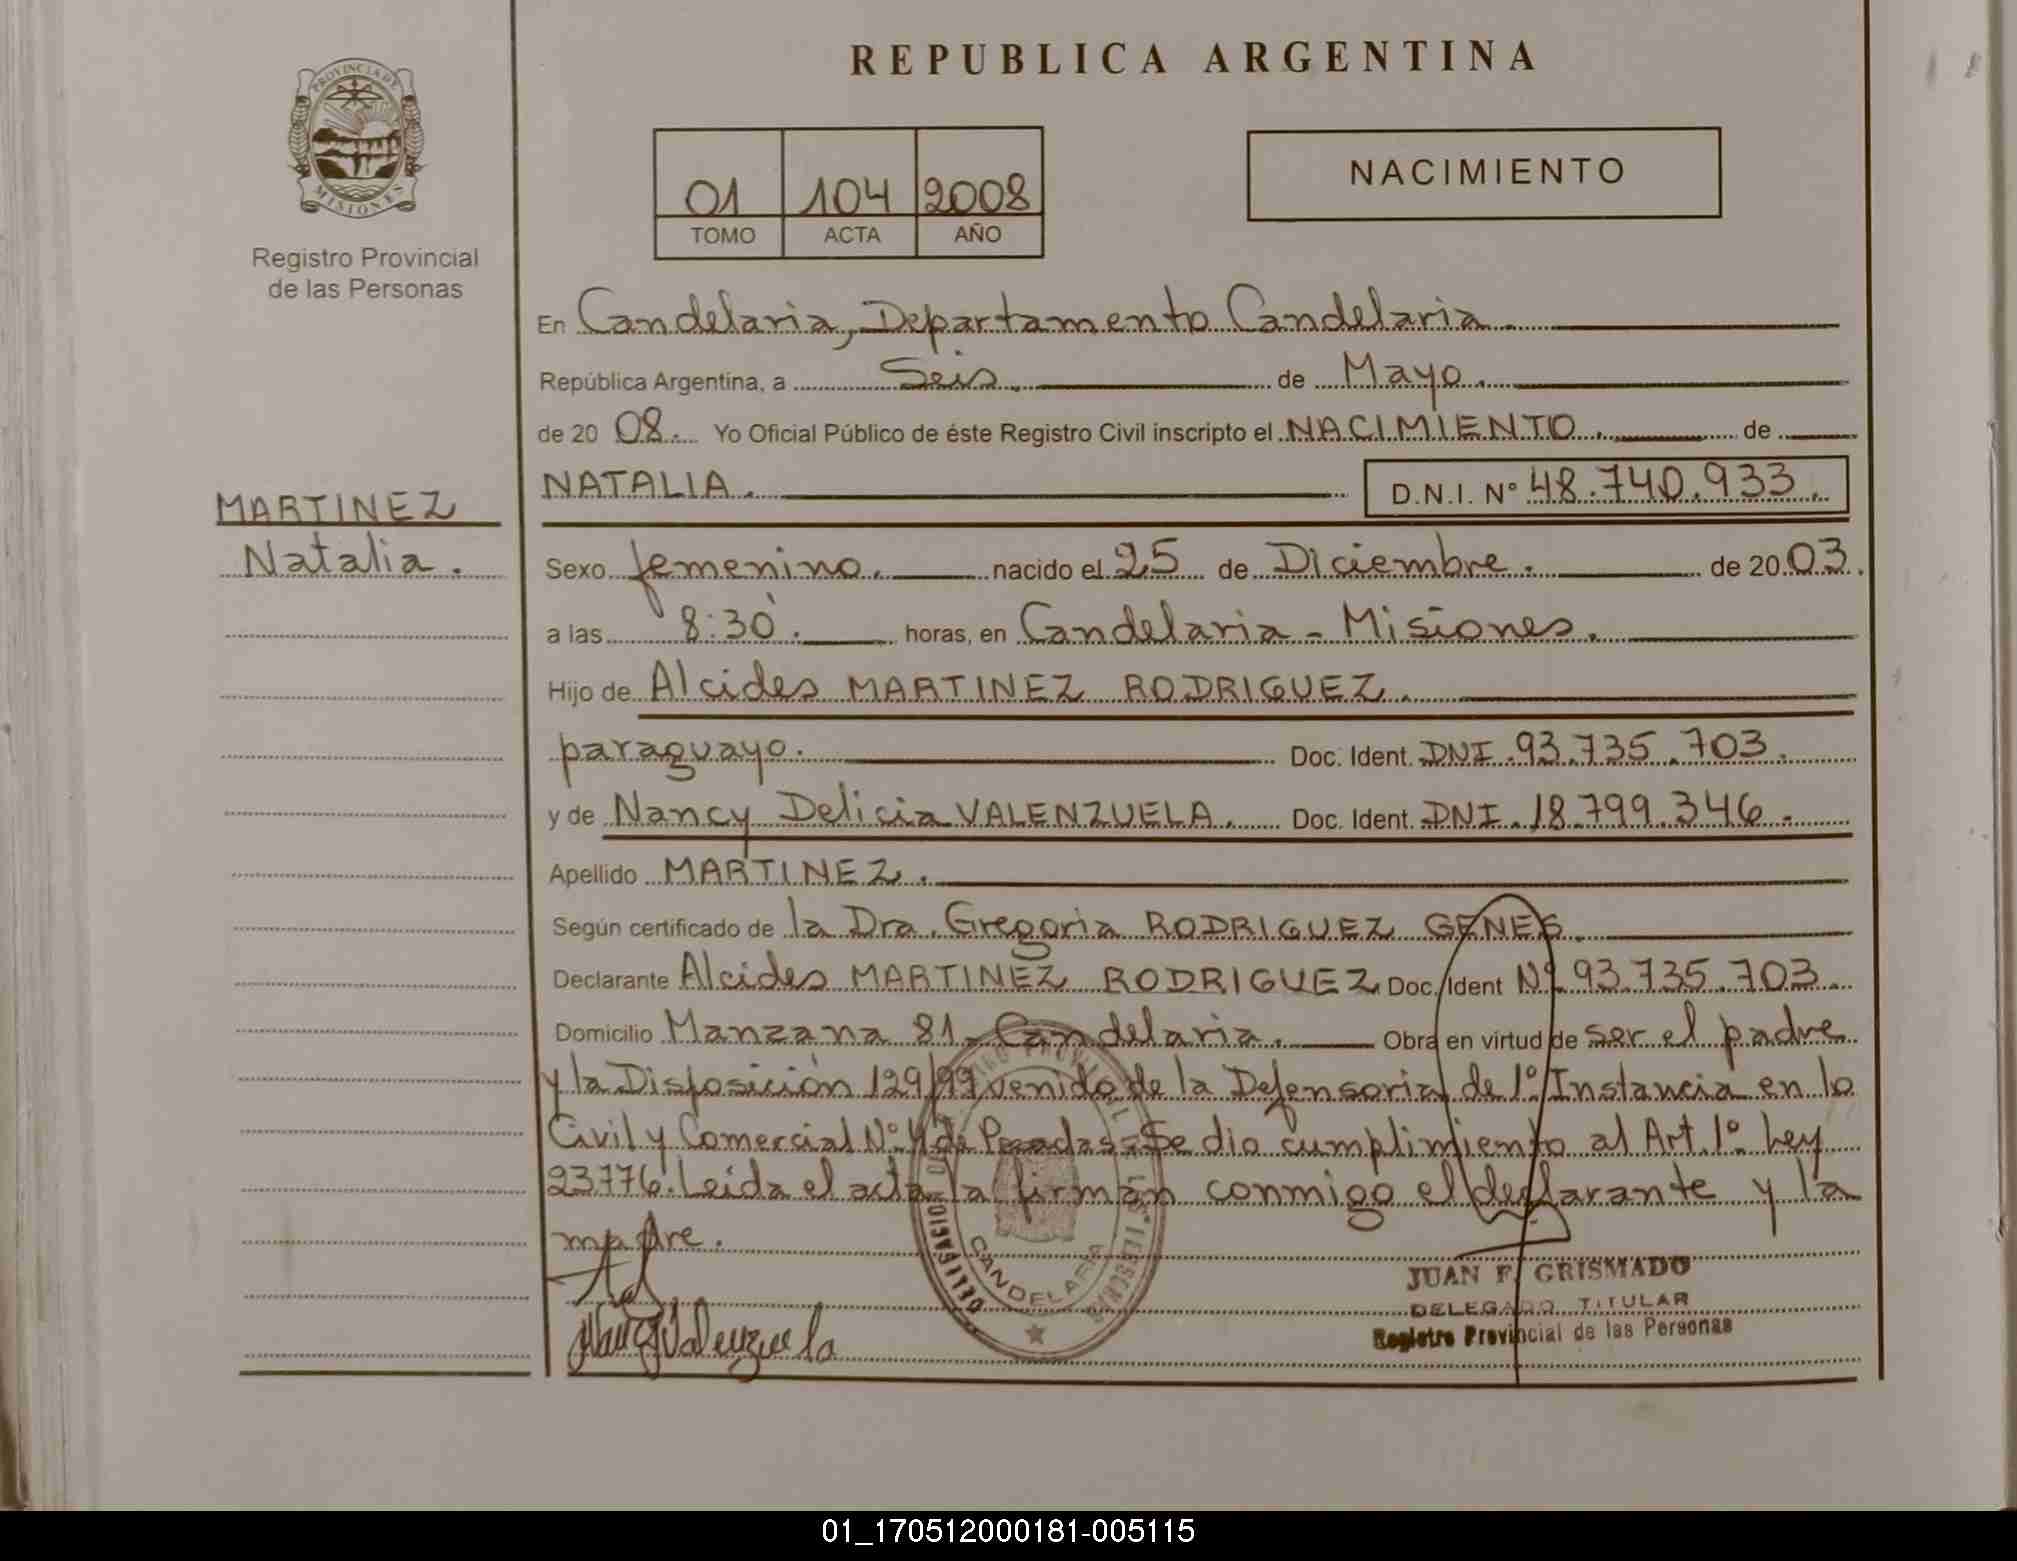 REPUBLICA ARGENTINA
PROVINCIA DE
MISIONES
Registro Provincial
de las Personas
01 104 2008
TOMO ACTA AÑO
NACIMIENTO
En Candelaria, Departamento Candelaria.
República Argentina, a Seis. de Mayo.
de 20 08. Yo Oficial Público de éste Registro Civil inscripto el NACIMIENTO. de
NATALIA. D.N.I. Nº 48.740.933.
MARTINEZ
Natalia.
Sexo femenino. nacido el 25 de Diciembre. de 20 03.
a las 8:30. horas, en Candelaria - Misiones.
Hijo de Alcides MARTINEZ RODRIGUEZ.
paraguayo. Doc. Ident. DNI. 93.735.703.
y de Nancy Delicia VALENZUELA. Doc. Ident. DNI. 18.799.346.
Apellido MARTINEZ.
Según certificado de la Dra. Gregoria RODRIGUEZ GENES.
Declarante Alcides MARTINEZ RODRIGUEZ Doc. Ident Nº 93.735.703.
Domicilio Manzana 81 - Candelaria. Obra en virtud de ser el padre
y la Disposición 129/99 venido de la Defensoria de 1º Instancia en lo
Civil y Comercial Nº 4 de Posadas - Se dio cumplimiento al Art. 1º Ley
23776. Leida el acta la firman conmigo el declarante y la
madre.
Nancy Valenzuela
CANDELARIA
JUAN F. GRISMADO
DELEGADO TITULAR
Registro Provincial de las Personas
01_170512000181-005115